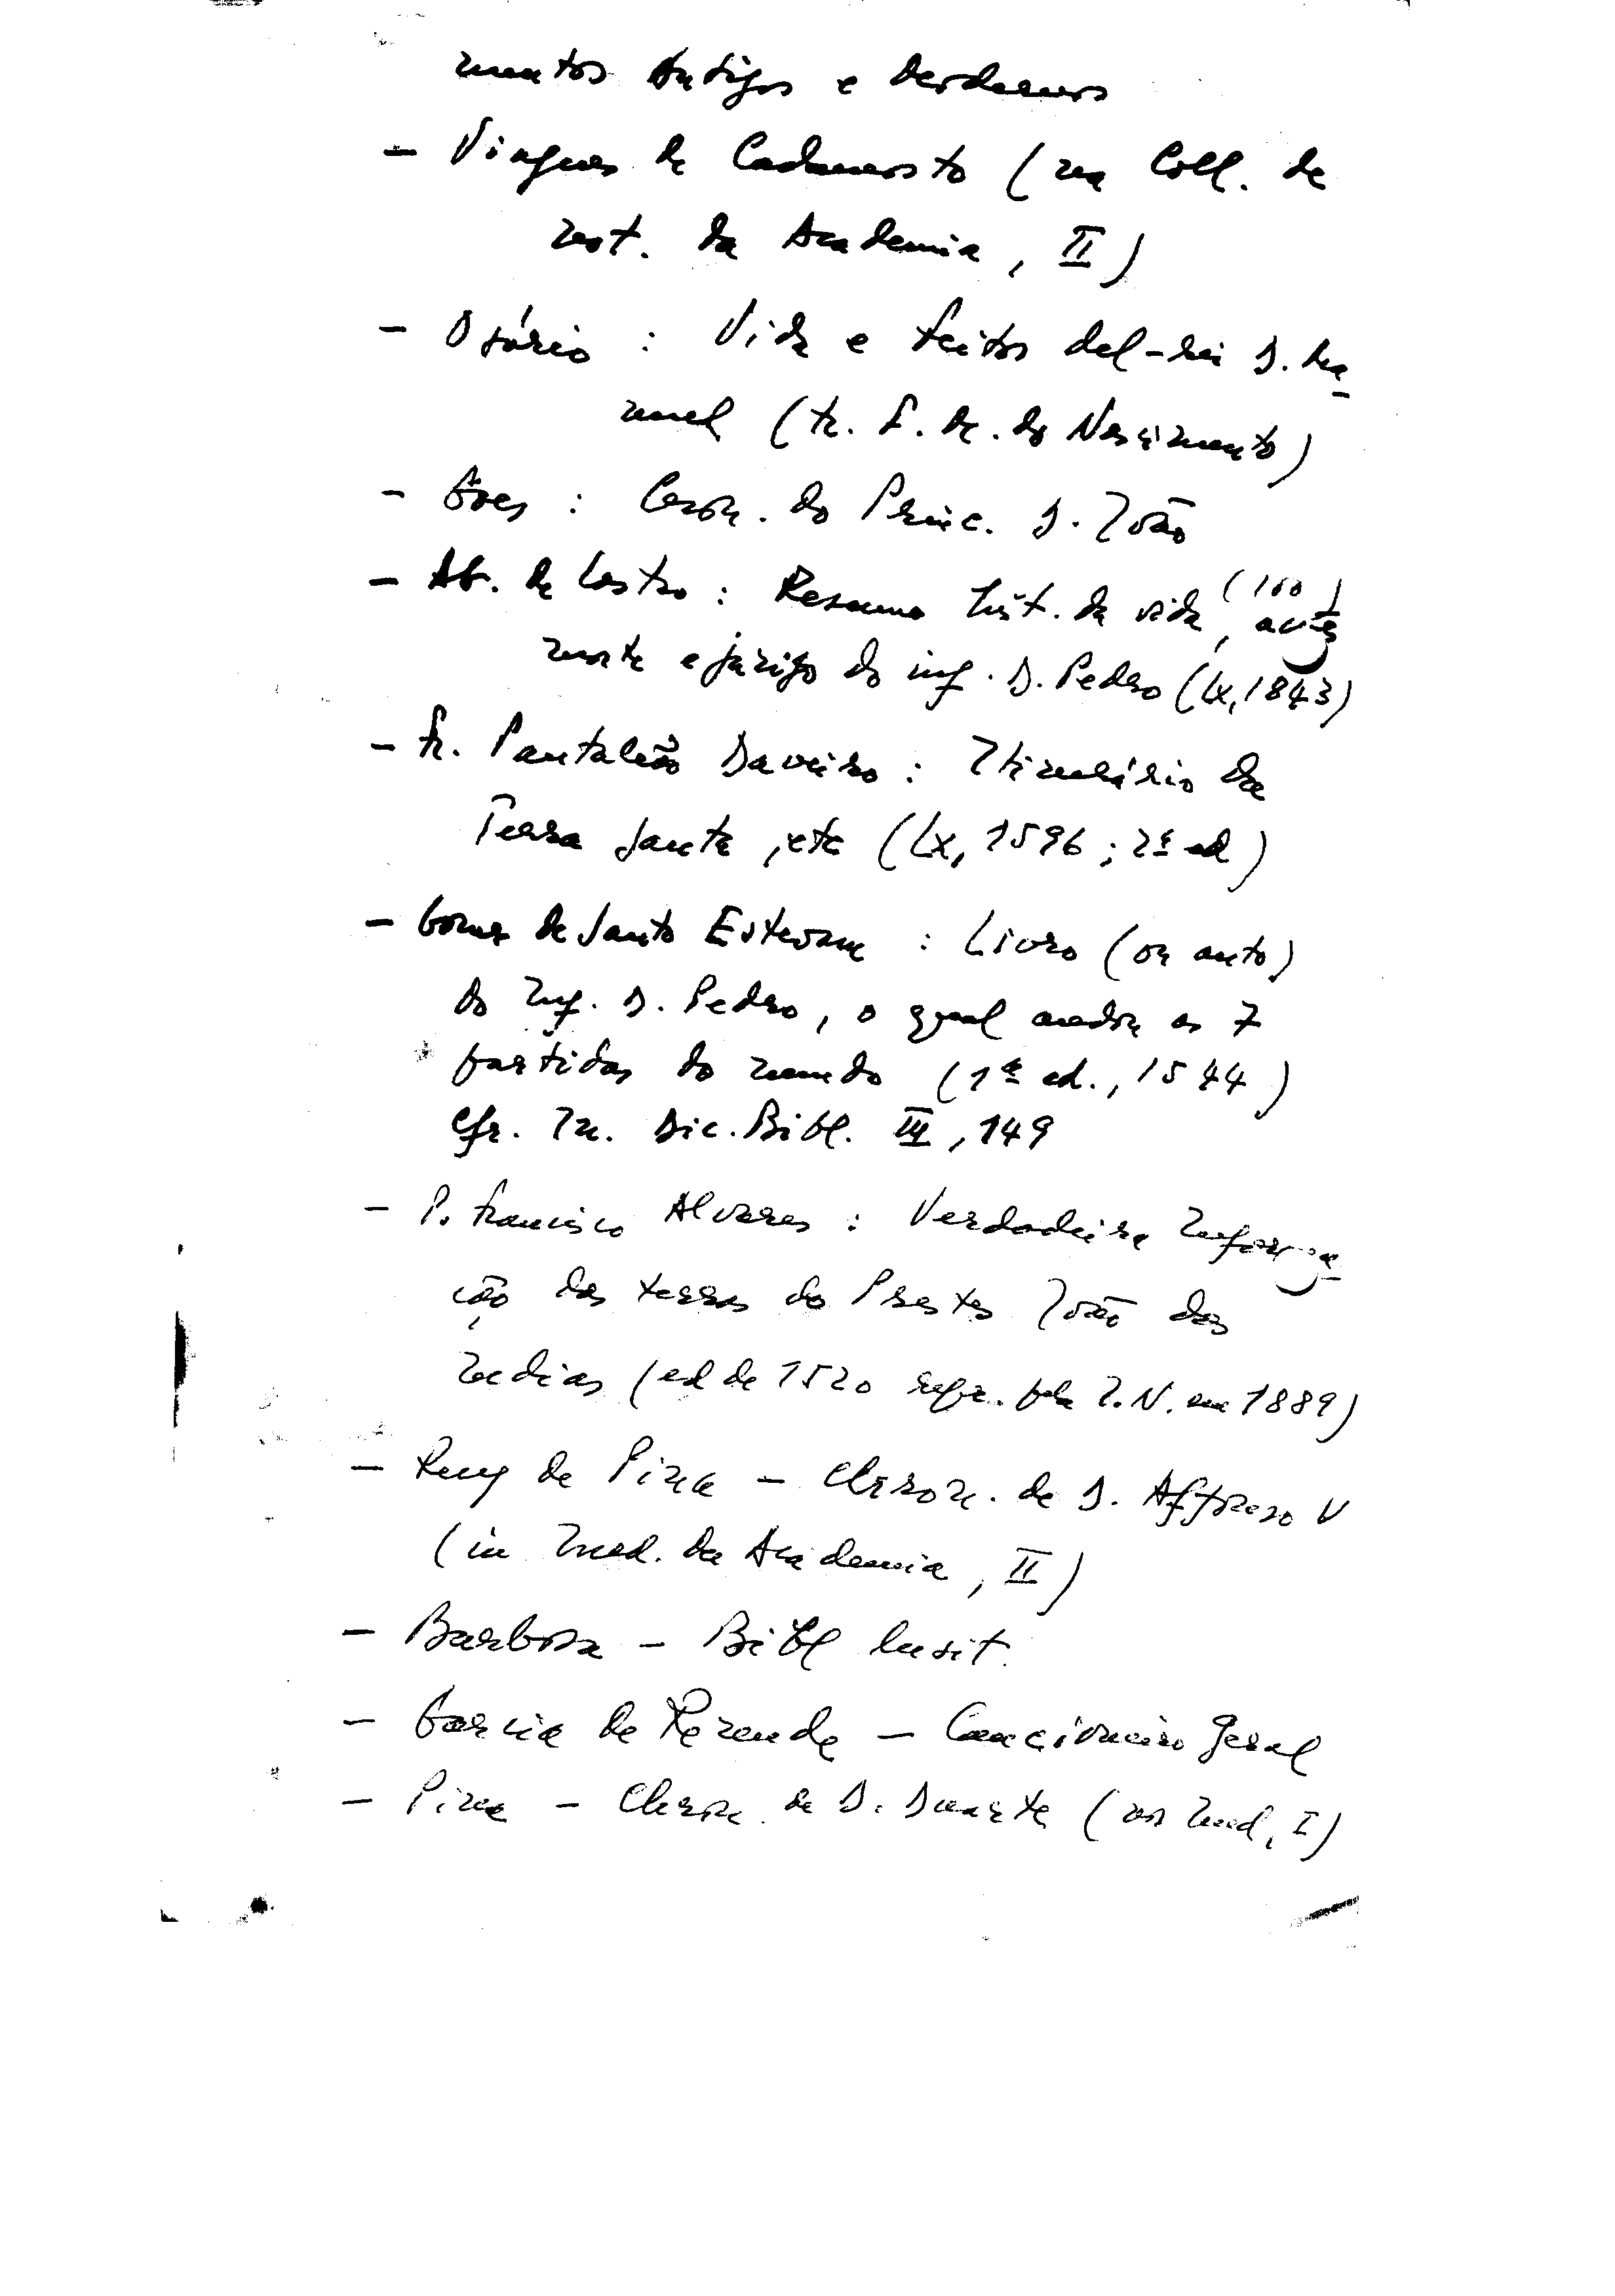 mentos Antigos e Modernos
– Viagens de Cadamosto (na Coll. de
not. da Academia, II)
– Osório : Vida e feitos del-rei D. Ma-
nuel (tr. F. M. do Nascimento)
– Goes : Cron. do Princ. D. João
– Ab. de Castro : Resumo hist. da vida, (100)
morte e jazigo do inf. D. Pedro (Lx, 1843)
– Fr. Pantaleão Daveiro : Itinerário da
Terra Santa, etc (Lx, 1596 ; 2ª ed)
– Gomez de Santo Estevam : Livro (ou auto)
do Inf. D. Pedro, o qual andou as 7
partidas do mundo (1ª ed., 1544)
Cfr. In. Dic. Bibl. III, 149
– P. Francisco Alvares : Verdadeira Informa-
ção das terras do Prestes João das
Indias (ed de 1520 repr. pela I. N. em 1889)
– Ruy de Pina – Chron. de D. Affonso V
(in Ined. da Academia, II)
– Barbosa – Bibl lusit.
– Garcia de Rezende – Cancioneiro Geral
– Pina – Chron. de D. Duarte (nos Ined, I)